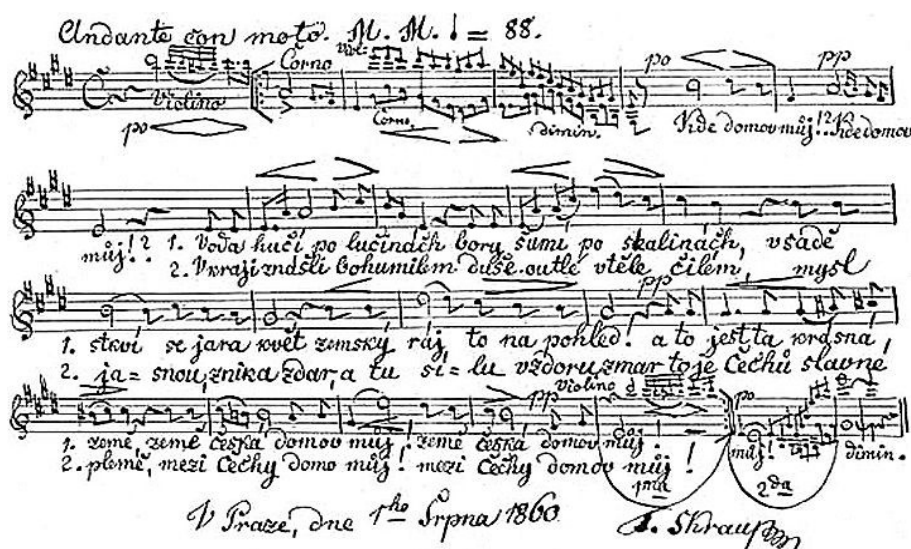 Andante con moto. M. M. ♩ = 88.
Viol: Corno
Violino Corno. dimin. po pp
po Kde domov můj!? Kde domov
můj!? 1. Voda hučí po lučinách bory šumí po skalinách, v sadě
2. V kraji znášli bohumilém duše outlé v těle čilém, mysl
pp
1. stkví se jara květ zemský ráj to na pohled! a to jest ta krásná,
2. ja=snou, znik a zdar, a tu sí=lu vzdoru zmar to je Čechů slavné
pp Violino po
1. země, země česká, domov můj! země česká, domov můj! můj! dimin.
2. plemě, mezi Čechy domo můj! mezi Čechy domov můj!
1ma 2da
V Praze, dne 1ho Srpna 1860.